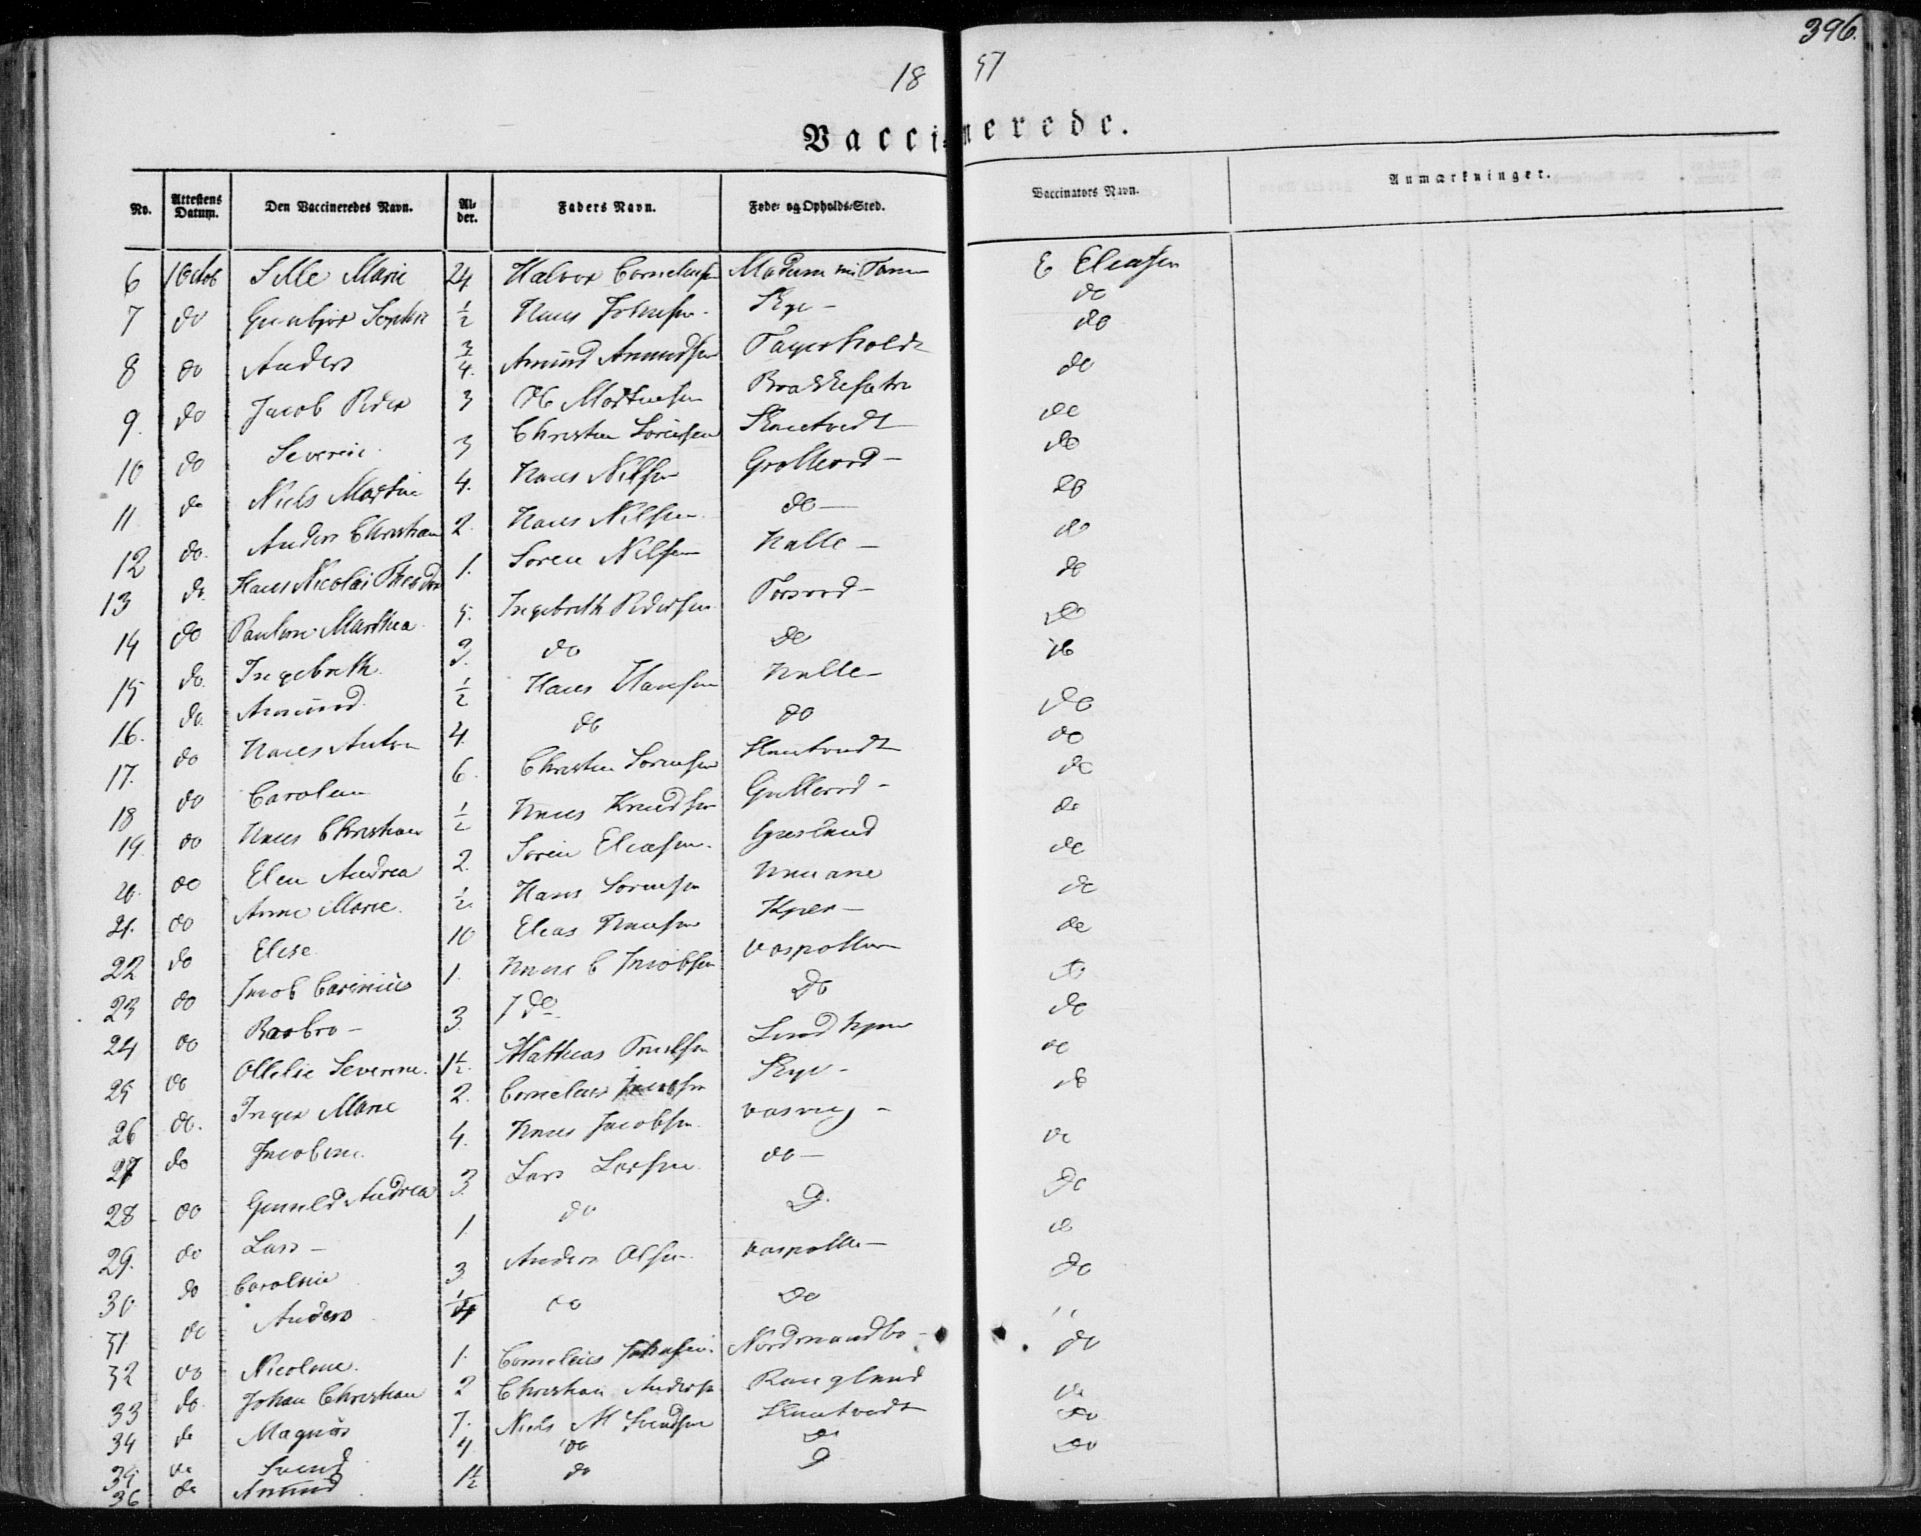 396.
18 57
Vaccinerede.
No. Attestens Datum. Den Vaccineredes Navn. Al- der. Faders Navn. Føde- og Opholds-Sted. Vaccinators Navn. Anmærkninger.
6 1 Octob Sille Marie 24 Halvor Corneliusen E Eliasen
7 do Sophie ½ Hans Johnsen Skye do
8 do Anders ¾ Amund Amundsen Fagerholdt do
9. do Jacob Peder 3 Ole Mathisen do
10 do Severin 3 Christen Sørensen Skautvedt do
11 do Niels Martin 4. Hans Nilsen Grollerød do
12 do. Anders Christian 2. Hans Nilsen do do
13 do. Hans Nicolai Theodor 1. Soren Nilsen Nalle do
14 do Pauline Marthea 5. Ingebreth Pedersen Torsrød do
15 do. Ingebreth 3. do do do
16. do. Amund ½ Hans Hansen Nalle do
17. do Hans Anton 4. do do do
18 do Caroline 6. Christen Sorensen Skautvedt do
19. do Hans Christian ½ Hans Knudsen Gullerød do
20. do Elen Andrea 2. Soren Eliasen Gresland do
21. do Anne Marie. ½ Hans Sorensen do
22 do Elise 10 Elias Hansen Kjær do
23 do Jacob Carinius 1. Hans C Jacobsen Vaspollen do
24 do Barbro 3. do Do do
25 do Ollelie Severine. 1½. Mathias Truelsen Lindkjær do
26 do. Inger Marie 2. Cornelius Skye do
27 do Jacobine 4. Hans Jacobsen Vasvig do
28 do Gunild Andrea 3. Lars Larsen do do
29. do Lars 1. do D. do
30 do Caroline 3. Anders Olsen Vaspollen do
31. do Anders ¼ do do "
32 do Nicoline. 1. Cornelius Johnsen Nordmandbo do
33 do. Johan Christian 2 Christian Andersen Rangland do
34 do Magnus 7. Niels M Svendsen Skautvedt do
35 do Svend 4 do do do
36 do Amund 1½ do D